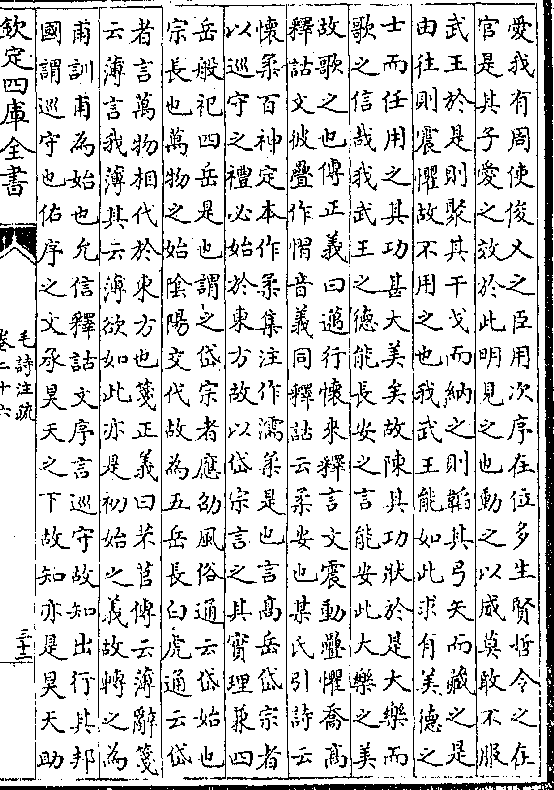 愛我有周使俊乂之臣用次序在位多生賢哲令之在
官是其子愛之效於此明見之也動之以威莫敢不服
武王於是則聚其干戈而納之則韜其弓矢而藏之是
由往則震懼故不用之也我武王能如此求有美德之
士而任用之其功甚大美矣故陳其功狀於是大樂而
歌之信哉我武王之德能長安之言能安此大樂之美
故歌之也傳正義曰邁行懷來釋言文震動疊懼喬高
釋詁文彼疊作慴音義同釋詁云柔安也某氏引詩云
懷柔百神定本作柔集注作濡柔是也言高岳岱宗者
以巡守之禮必始於東方故以岱宗言之其實理兼四
岳般祀四岳是也謂之岱宗者應劭風俗通云岱始也
宗長也萬物之始陰陽交代故為五岳長白虎通云岱
者言萬物相代於東方也箋正義曰芣苢傳云薄辭箋
云薄言我薄其云薄欲如此亦是初始之義故轉之為
甫訓甫為始也允信釋詁文序言巡守故知出行其邦
國謂巡守也佑序之文承昊天之下故知亦是昊天助
欽定四庫全書
毛詩注疏
卷二十六
三十二